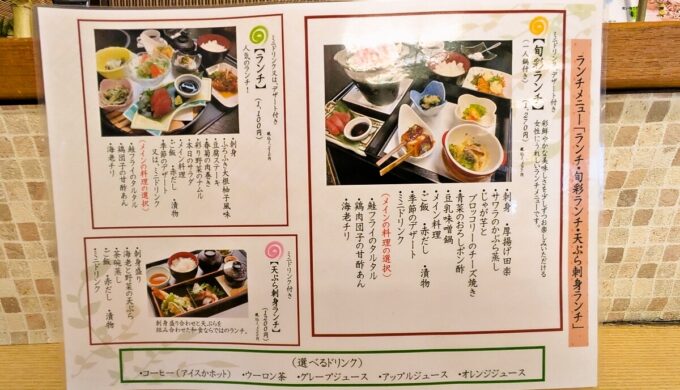 ランチメニュー「ランチ・旬彩ランチ・天ぷら刺身ランチ」
彩鮮やかな美味しさを少しずつお楽しみいただける
女性にうれしいランチメニューです。
ミニドリンク、デザート付き
【旬彩ランチ】
(一人鍋付き)
・刺身　・厚揚げ田楽
・サワラのかぶら蒸し
・じゃが芋と
ブロッコリーのチーズ焼き
・青菜のおろしポン酢
・豆乳味噌鍋
・メイン料理
・ご飯　・赤だし　・漬物
・季節のデザート
・ミニドリンク
(メインの料理の選択)
・鮭フライのタルタル
・鶏肉団子の甘酢あん
・海老チリ
ミニドリンク又は、デザート付き
【ランチ】
(1,100円)
人気のランチ!
・刺身
・ふろふき大根柚子風味
・豆腐ステーキ
・春菊の肉巻き
・彩り野菜のナムル
・本日のサラダ
・メイン料理
・ご飯　・赤だし　・漬物
・季節のデザート
又は、ミニドリンク
(メインの料理の選択)
・鮭フライのタルタル
・鶏団子の甘酢あん
・海老チリ
ミニドリンク付き
【天ぷら刺身ランチ】
・刺身盛り
・海老と野菜の天ぷら
・茶碗蒸し
・ご飯　・赤だし　・漬物
・ミニドリンク
刺身盛り合わせと天ぷらを
組み合わせた和食ならではのランチ。
(選べるドリンク)
・コーヒー(アイスかホット)　・ウーロン茶　・グレープジュース　・アップルジュース　・オレンジジュース